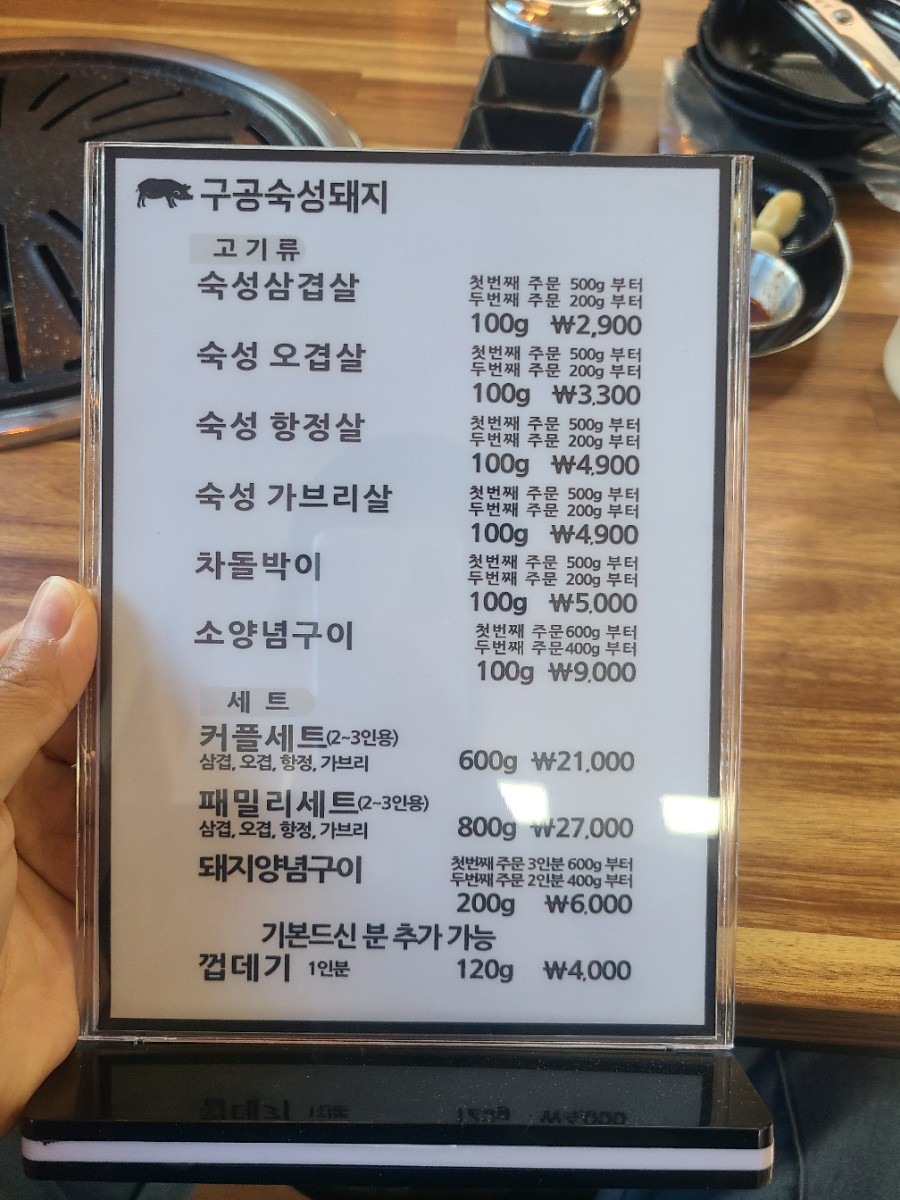 구공숙성돼지
고기류
숙성삼겹살
첫번째 주문 500g 부터
두번째 주문 200g 부터
100g ₩2,900
숙성 오겹살
첫번째 주문 500g 부터
두번째 주문 200g 부터
100g ₩3,300
숙성 항정살
첫번째 주문 500g 부터
두번째 주문 200g 부터
100g ₩4,900
숙성 가브리살
첫번째 주문 500g 부터
두번째 주문 200g 부터
100g ₩4,900
차돌박이
첫번째 주문 500g 부터
두번째 주문 200g 부터
100g ₩5,000
소양념구이
첫번째 주문600g 부터
두번째 주문400g 부터
100g ₩9,000
세트
커플세트(2~3인용)
삼겹, 오겹, 항정, 가브리 600g ₩21,000
패밀리세트(2~3인용)
삼겹, 오겹, 항정, 가브리 800g ₩27,000
돼지양념구이
첫번째 주문 3인분 600g 부터
두번째 주문 2인분 400g 부터
200g ₩6,000
기본드신 분 추가 가능
껍데기 1인분 120g ₩4,000